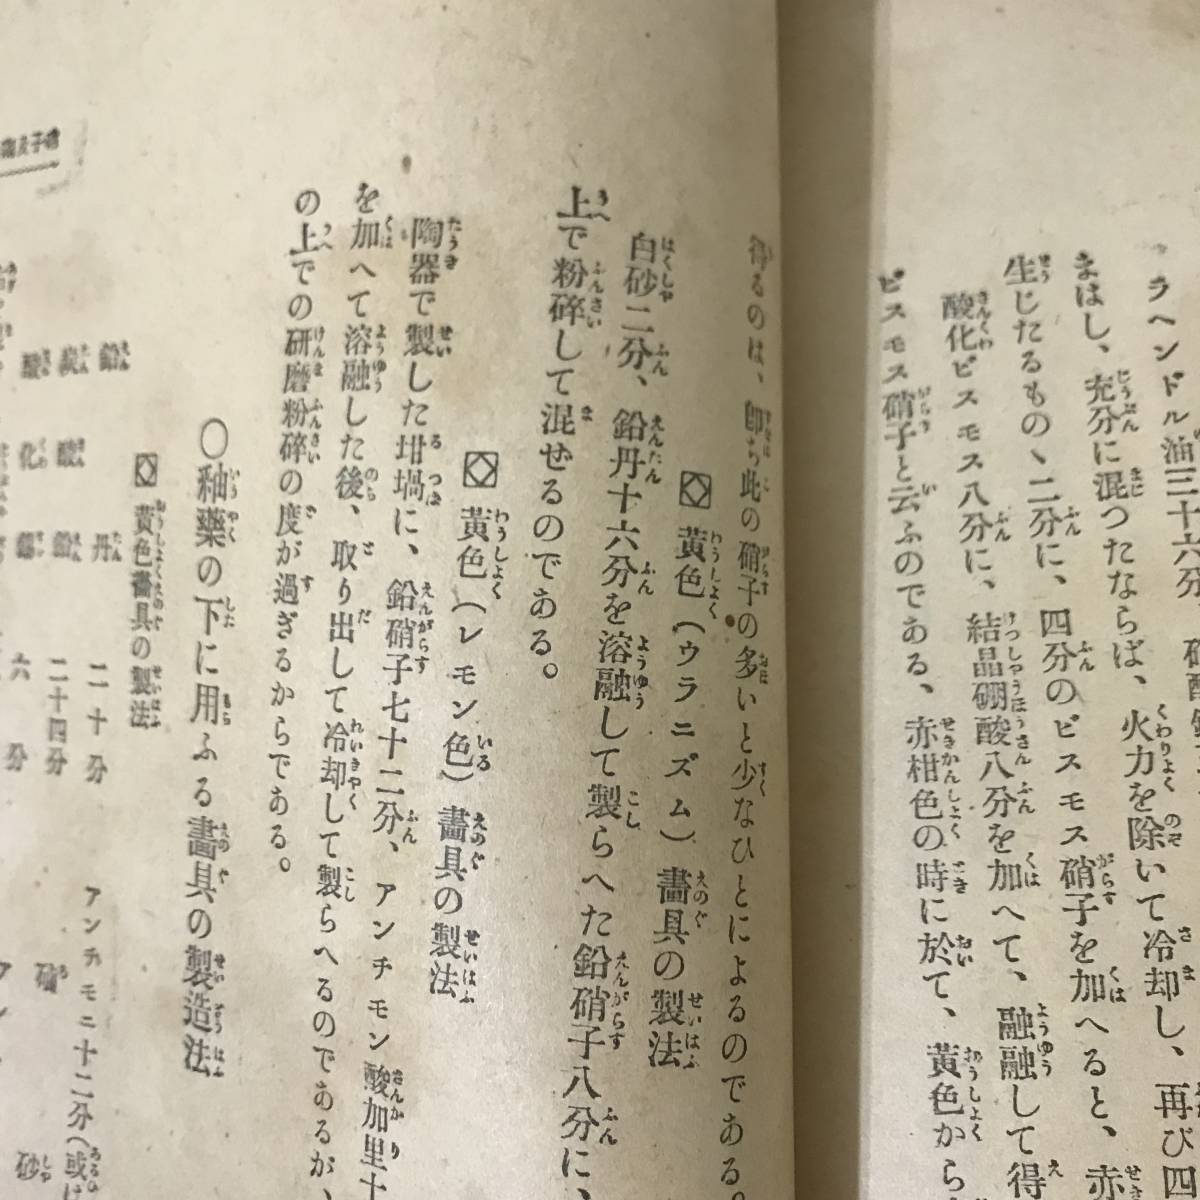 ラヘンドル油三十六分
まはし、充分に混つたならば、火力を除いて冷却し、再び四
生じたるものヽ二分に、四分のビスモス硝子を加へると、赤
酸化ビスモス八分に、結晶硼酸八分を加へて、融融して得
ビスモス硝子と云ふのである、赤柑色の時に於て、黄色から
得るのは、即ち此の硝子の多いと少なひとによるのである。
黄色(ウラニズム)畵具の製法
白砂二分、鉛丹十六分を溶融して製らへた鉛硝子八分に、
上で粉碎して混ぜるのである。
黄色(レモン色)畵具の製法
陶器で製した坩堝に、鉛硝子七十二分、アンチモン酸加里十
を加へて溶融した後、取り出して冷却して製らへるのであるが、
の上での研磨粉碎の度が過ぎるからである。
〇釉藥の下に用ふる畵具の製造法
黄色畵具の製法
鉛丹 二十分 アンチモニ十二分(或は
炭酸鉛 二十四分 硝
酸化錫 六分 砂